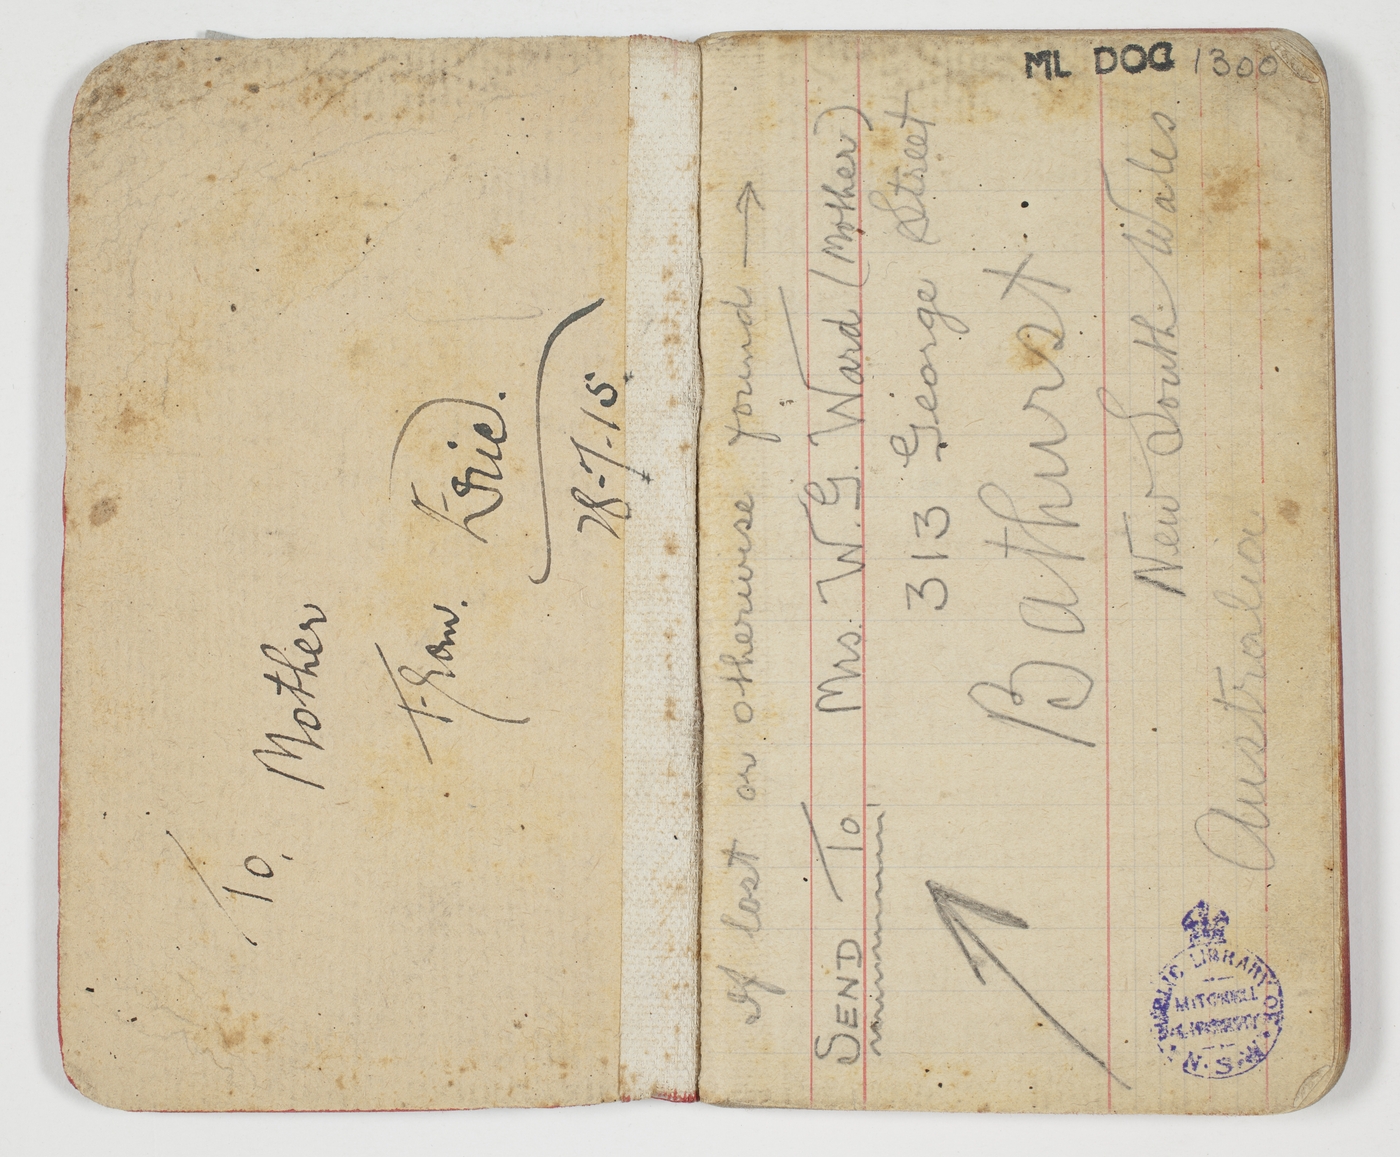 To,
Mother
From.
Eric.
28-7-15.
ML DOC 1300
If lost or otherwise found →
SEND To Mrs. W. G. Ward (Mother)
313 George Street
Bathurst
New South Wales
Australia.
PUBLIC LIBRARY OF
MITCHELL
LIBRARY
N.S.W.